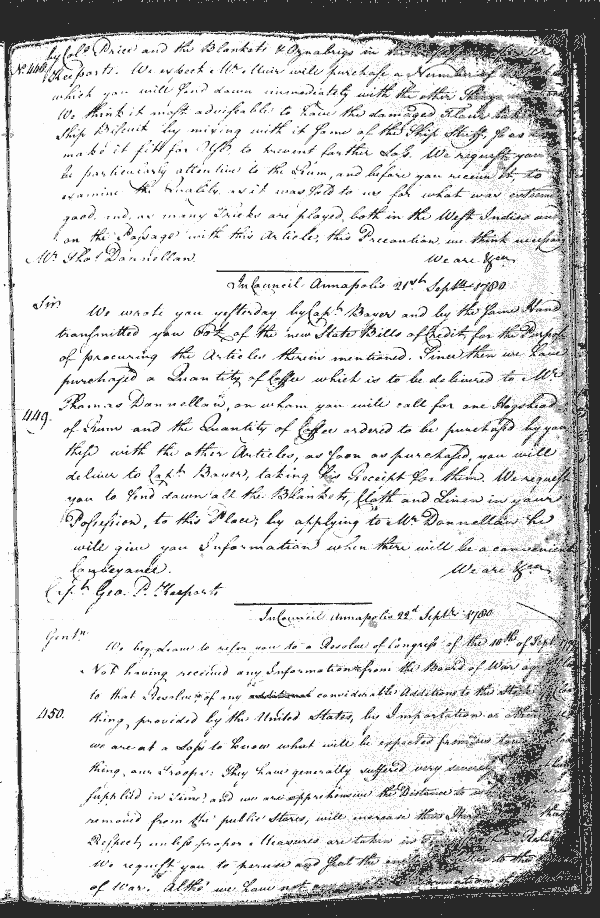 by Col.o Price and the Blankets & Oznabrigs in the
No. 448 Keeports. We expect Mr. Muir will purchase a Number of
which you will send down immediately with the other Things
We think it most adviseable to have the damaged Flour
Ship Biscuit by mixing with it some of the Ship Stuff, so as
make it fit for Use to prevent farther Loss. We request you
be particularly attentive to the Rum, and before you receive it to
examine the Quality, as it was sold to us for what was extreme
good, and, as many Tricks are played, both in the West Indies and
on the Passage with this Article, this Precaution we think necessary
Mr. Thos. Dannellan. We are &ca.
In Council Annapolis 21st Septr. 1780
Sir
We wrote you yesterday by Capt. Bayer and by the same Hand
transmitted you of the new State Bills of Credit, for the Purpose
of procuring the Articles therein mentioned. Since then we have
purchased a Quantity of Coffee which is to be delivered to Mr.
Thomas Dannellan, on whom you will call for one Hogshead
449. of Rum and the Quantity of Coffee ordered to be purchased by you
these with the other Articles, as soon as purchased, you will
deliver to Capt. Bayer, taking his Receipt for them. We request
you to send down all the Blankets, Cloth and Linen in your
Possession, to this Place, by applying to Mr. Dannellan he
will give you Information when there will be a convenient
Conveyance. We are &ca.
Capt. Geo. P. Keeports
In Council Annapolis 22d Septr. 1780
Gentn.
We beg Leave to refer you to a Resolve of Congress of the 10th of Sept
Not having received any Information from the Board of War
to that Resolve of any considerable Additions to the Stock
450. thing, provided by the United States, by Importation or other
we are at a Loss to know what will be expected from us
thing, our Troops. They have generally suffered very severely
supplied in Time, and we are apprehensive the Distance to
removed from the public Stores, will increase their
Respect, unless proper Measures are taken in
We request you to peruse and seal the to the
of War. Altho' we have not